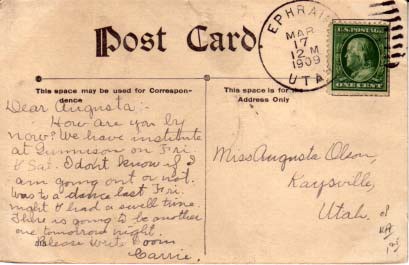 Post Card
EPHRAIM
MAR
17
12 M
1909
UTAH
U.S. POSTAGE
ONE CENT
This space may be used for Correspon-
dence
This space is for
Address Only
Dear Augusta:-
How are you by
now? We have institute
at Gunnison on Fri.
& Sat. I don't know if I
am going out or not.
Was to a dance last Fri.
night & had a swell time.
There is going to be another
one tomorrow night.
Please write soon
Carrie.
Miss Augusta Olson,
Kaysville,
Utah.